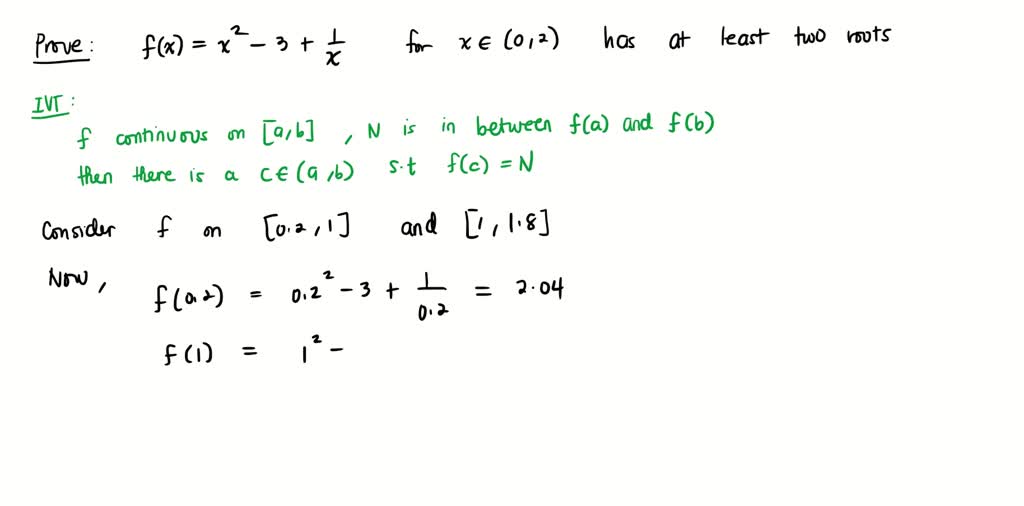 Prove: f(x) = x² - 3 + 1/x for x ∈ (0,2) has at least two roots
IVT:
f continuous on [a,b], N is in between f(a) and f(b)
then there is a c ∈ (a,b) s.t f(c) = N
Consider f on [0.2, 1] and [1, 1.8]
Now, f(0.2) = 0.2² - 3 + 1/0.2 = 2.04
f(1) = 1² -